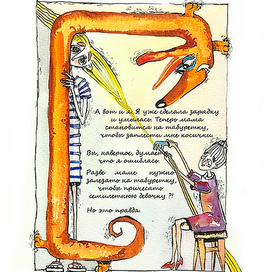 А вот и я. Я уже сделала зарядку
и умылась. Теперь мама
становится на табуретку,
чтобы заплести мне косички.
Вы, наверное, думаете,
что я ошиблась.
Разве маме нужно
залезать на табуретку,
чтобы причесать
семилетнюю девочку ?!
Но это правда.